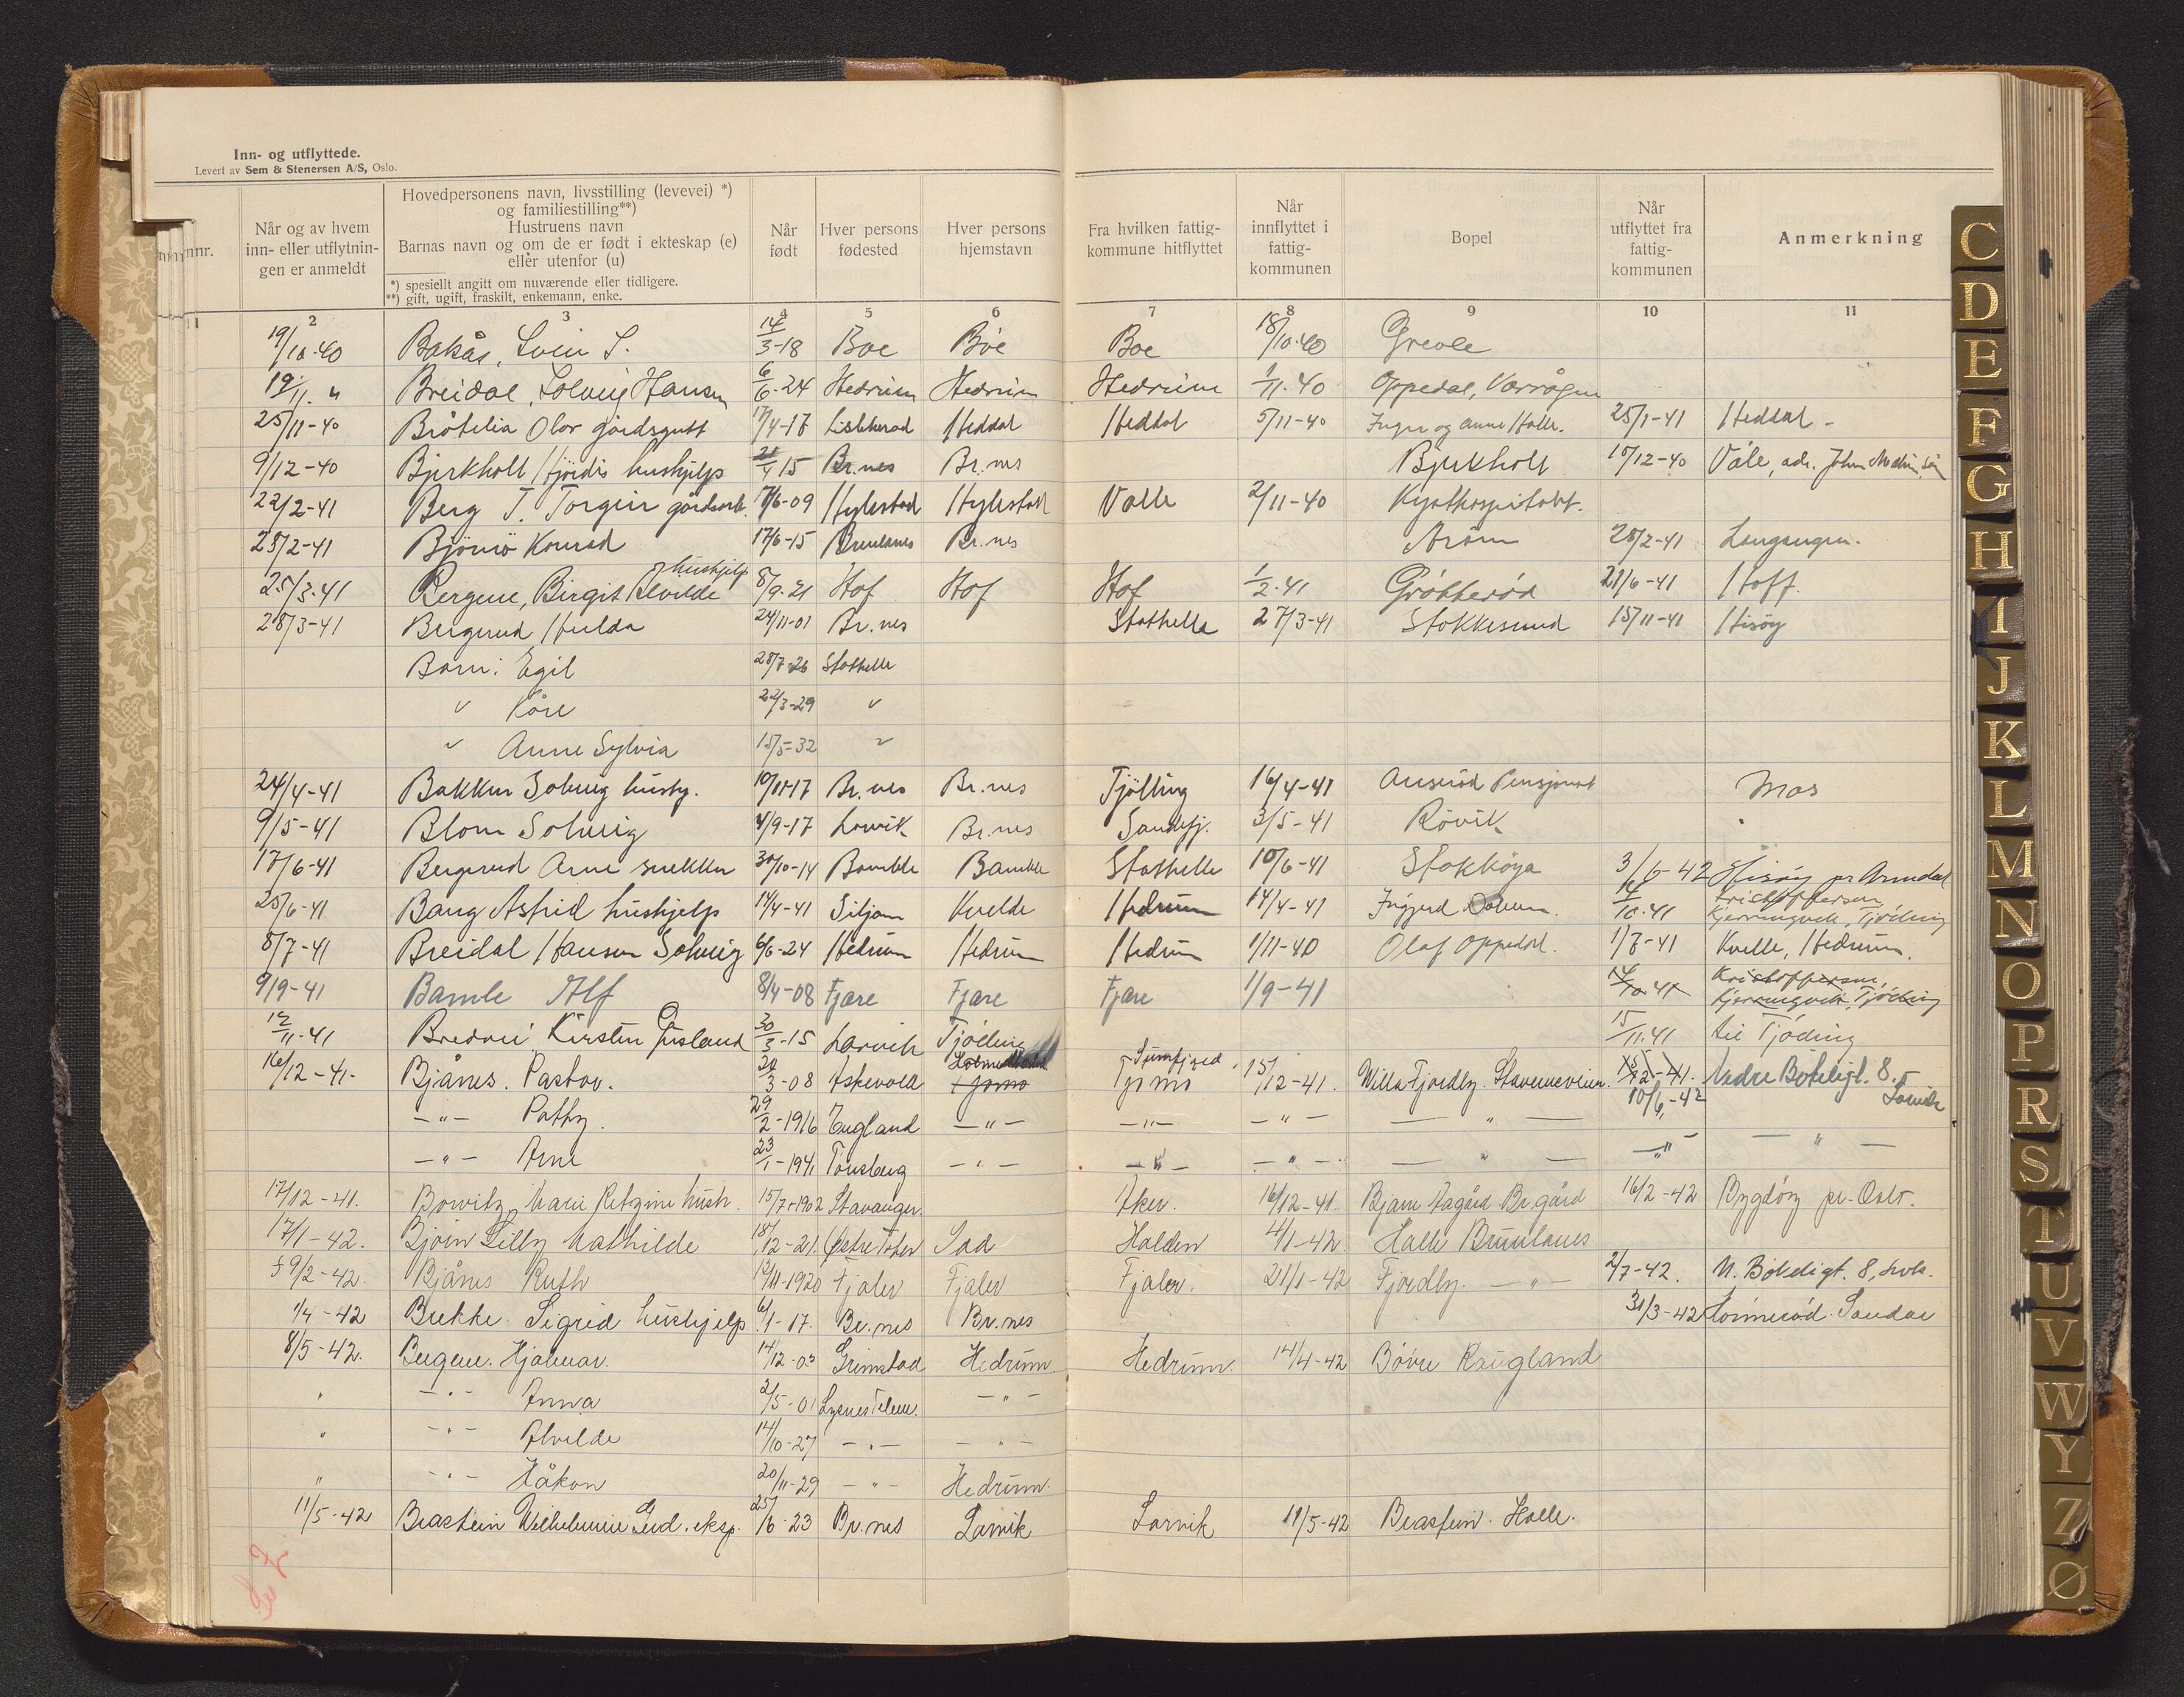 Inn- og utflyttede.
Levert av Sem & Stenersen A/S, Oslo.
nr.
Når og av hvem inn- eller utflytningen er anmeldt
Hovedpersonens navn, livsstilling (levevei) *) og familiestilling**)
Hustruens navn
Barnas navn og om de er født i ekteskap (e) eller utenfor (u)
*) spesiellt angitt om nuværende eller tidligere.
**) gift, ugift, fraskilt, enkemann, enke.
Når født
Hver persons fødested
Hver persons hjemstavn
Fra hvilken fattigkommune hitflyttet
Når innflyttet i fattigkommunen
Bopel
Når utflyttet fra fattigkommunen
Anmerkning
1 2 3 4 5 6 7 8 9 10 11
19/10-40 Bakås, Svein S. 14/3-18 Boe Böe Boe 18/10-40 Greole
19/11 " Breidal, Solveig Hansen 6/6-24 Hedrum Hedrum Hedrum 1/11-40 Oppedal, Varrågen
25/11-40 Bråtelia Olav gårdsgutt 17/4-17 Heddal Heddal 5/11-40 Inger og Anne Halle. 25/1-41 Heddal -
9/12-40 Bjerkholt Hjördis hushjelp 21/4 15 Br.nes Br.nes Bjerkholt 10/12-40 Våle, adr. John
22/2-41 Berg T. Torgeir gårdsarb. 7/6-09 Hylestad Hylestad Valle 2/11-40 Kysthospitalet.
25/2-41 Björnö Konrad 17/6-15 Brunlanes Br.nes Aröen 28/2-41 Langangen.
25/3-41 Bergene, Birgit Alvilde hushjelp 8/9-21 Hof Hof Hof 1/2-41 Grötteröd 21/6-41 Hoff.
28/3-41 Bergerud Hulda 24/11-01 Br.nes Stathelle 27/3-41 Stokkesund 15/11-41 Hisöy
Barn: Egil 28/7-26 Stathelle
" Kåre 22/3-29 "
" Anne Sylvia 15/5-32 "
24/4-41 Bakken Solveig husbg. 10/11-17 Br.nes Br.nes Tjölling 16/4-41 Anseröd Pensjonat Mos
9/5-41 Blom Solveig 4/9-17 Larvik Br.nes Sandefj. 3/5-41 Rövik
17/6-41 Bergerud Arne snekker 30/10-14 Bamble Bamble Stathelle 10/6-41 Stokköya 3/6-42 Hisöy pr Arendal
25/6-41 Bang Astrid hushjelp 14/4-41 Siljan Kvelde Hedrum 14/4-41 Ingjerd 4/10-41 Kristoffersen Kjerringvik, Tjölling
8/7-41 Breidal Hansen Solveig 6/6-24 Hedrum Hedrum Hedrum 1/11-40 Olaf Oppedal. 1/7-41 Kvelle, Hedrum.
9/9-41 Bamle Alf 8/4-08 Fjære Fjære Fjære 1/9-41 14/10-41 Kristoffersen, Kjerringvik, Tjölling
12/11-41 Bredvei Kirsten Gusland 30/3-15 Larvik Tjölling 15/11-41 til Tjölling
16/12-41. Bjånes. Pastor. 30/3-08 Askevold Tjömo Tjömo 15/12-41. Willa Fjordby. Stavernveien. 15/12-41. 10/6-42 Nedre Bökeligt. 8. Larvik
-"- Pathy. 29/2-1916 England -"- -"- -"- -"-
-"- Arne 23/1-1941 Tönsberg -"- -"- -"- -"- -"- -"-
17/12-41. Borwitz, Marie Retzine hush. 15/7-1902 Stavanger. Aker. 16/12-41. Bjarne Aagård Br.gård 16/2-42 Bygdöy pr. Oslo.
17/1-42. Björn Lilly Mathilde 18/12-21. Østre Toten Halden 4/1-42. Halle Brunlanes
9/2-42. Bjånes Ruth 12/11-1920 Fjaler Fjaler Fjaler. 21/1-42 Fjordby. -"- 2/7-42. N. Bökeligt. 8, Lvk.
1/4-42 Brekke. Sigrid hushjelp 6/1-17. Br.nes Br.nes 31/3-42 Sandar
8/5-42. Bergene. Hjalmar. 14/12-03 Grimstad Hedrum Hedrum. 14/4-42 Bövre Raugland
" -"- Anna 2/5-01 Telem. -"-
" -"- Alvilde 14/10-27 -"- -"-
" -"- Håkon 20/11-29 -"- Hedrum.
11/5-42 Brastein Wilhelmine Gud. eksp. 25/6-23 Br.nes Larvik Larvik 11/5-42 Brastein. Halle.
C
D
E
F
G
H
I
J
K
L
M
N
O
P
R
S
T
U
V
W
Y
Z
Ø